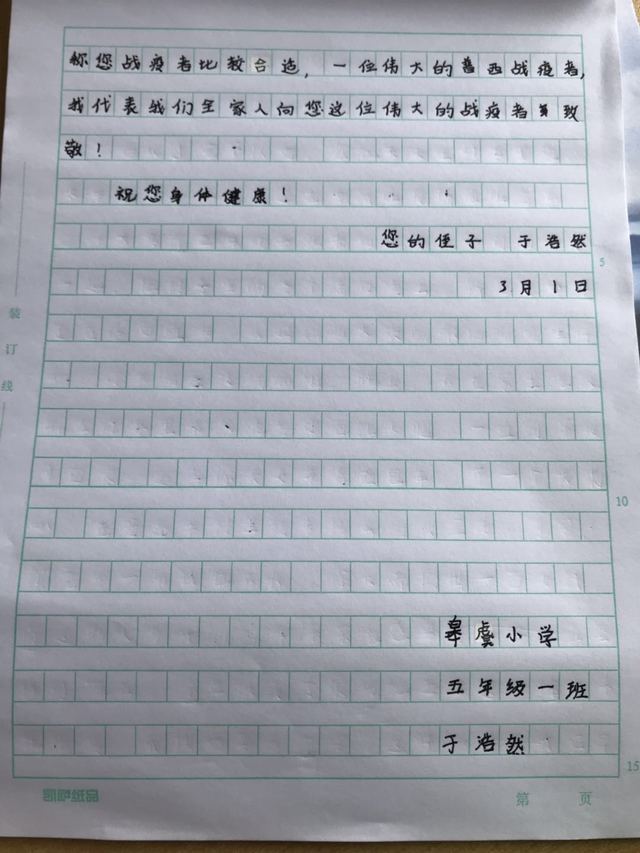 称您战疫者比较合适，一位伟大的普西战疫者，
我代表我们全家人向您这位伟大的战疫者致
敬！
祝您身体健康！
您的侄子 于浩然
3月1日
5
装
订
线
10
皋虞小学
五年级一班
于浩然
15
第 页